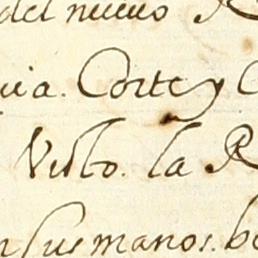 del nuevo R
uia. Corte y C
Visto. la R
n sus manos. be